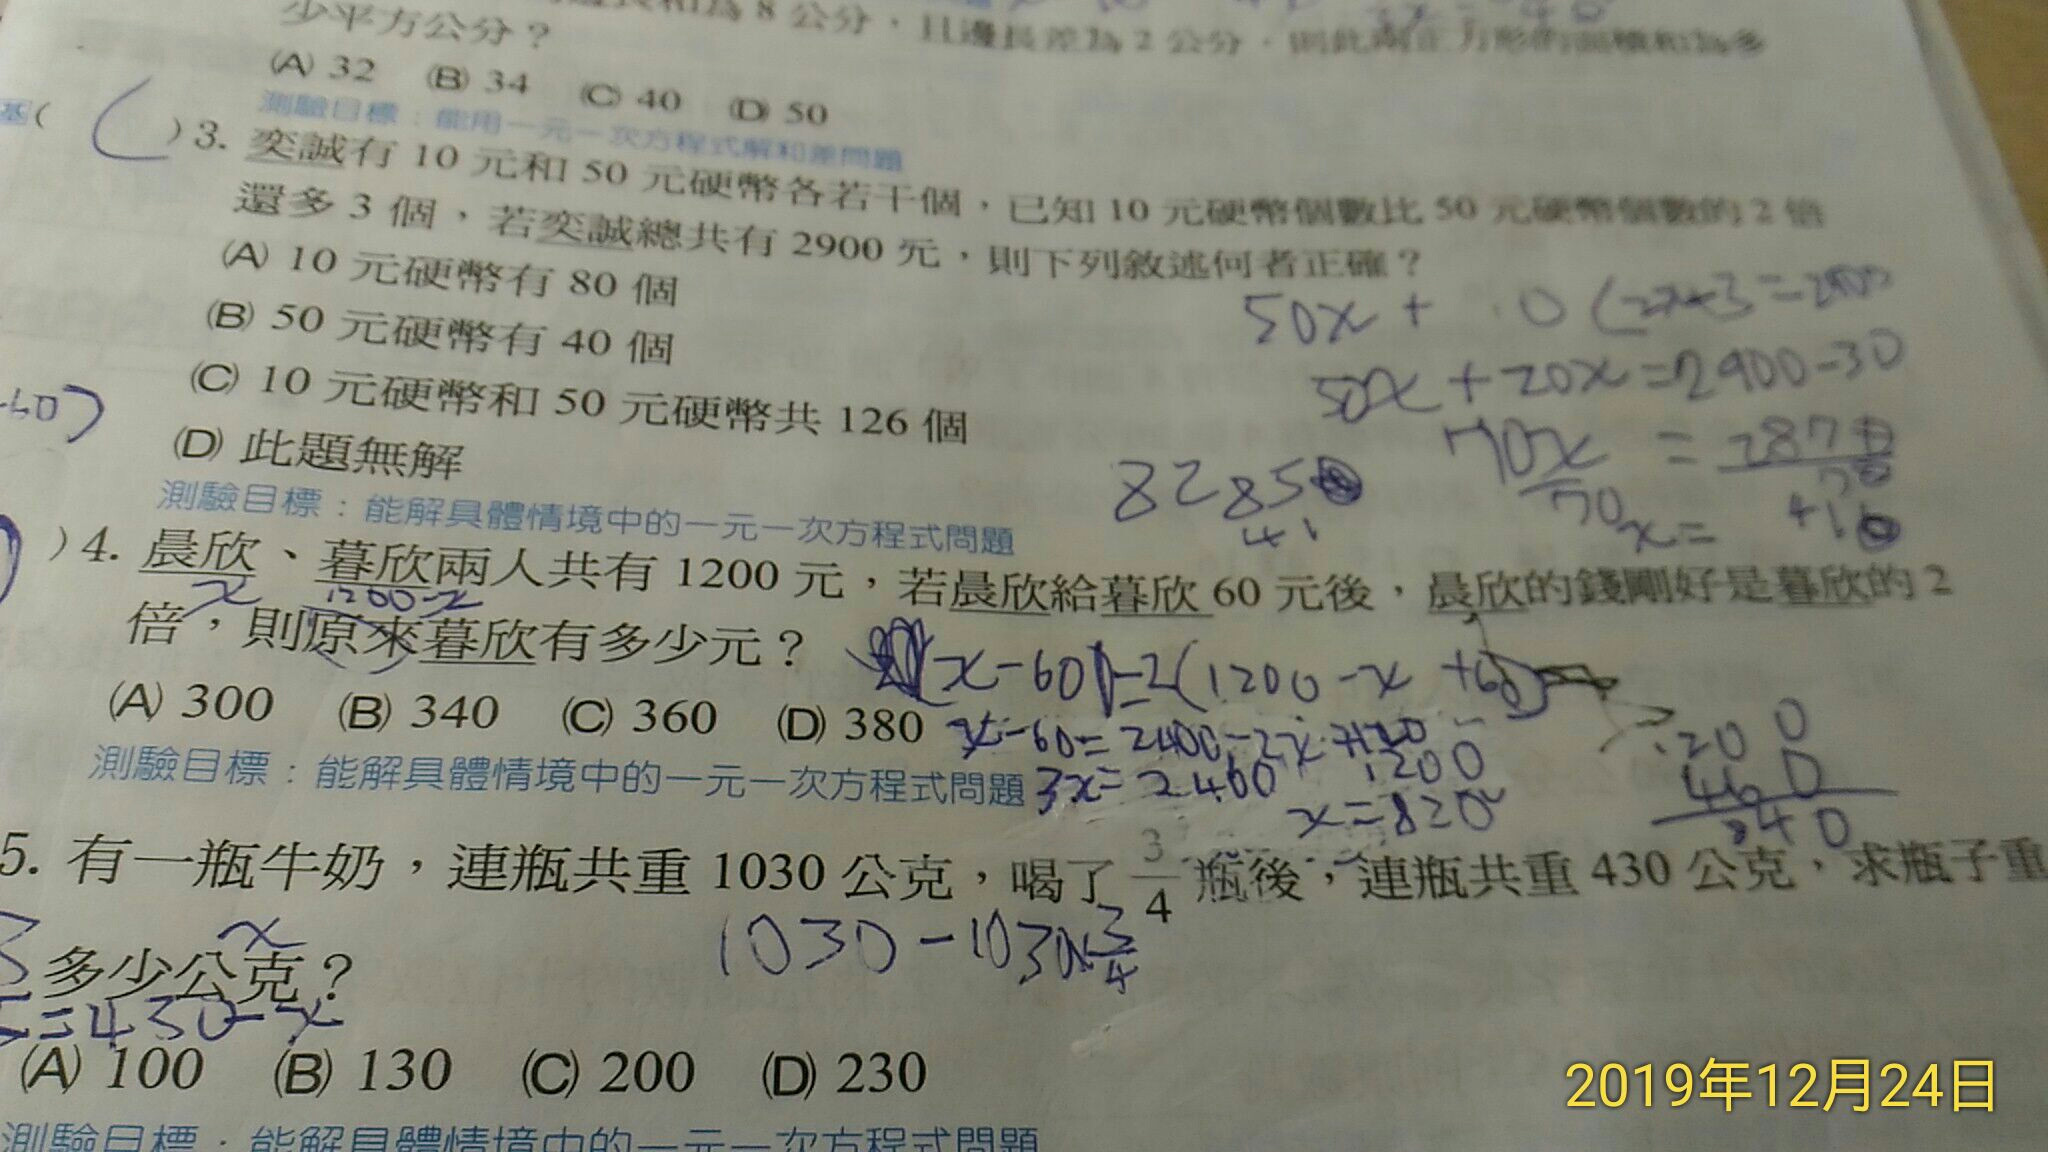 公分，且邊長差為 2 公分，則此兩正方形的面積和為多
少平方公分？
(A) 32 (B) 34 (C) 40 (D) 50
測驗目標：能用一元一次方程式解和差問題
基( ) 3. 奕誠有 10 元和 50 元硬幣各若干個，已知 10 元硬幣個數比 50 元硬幣個數的 2 倍
還多 3 個，若奕誠總共有 2900 元，則下列敘述何者正確？
(A) 10 元硬幣有 80 個
50x +
(B) 50 元硬幣有 40 個
50x + 20x = 2900-30
(C) 10 元硬幣和 50 元硬幣共 126 個
70x =
(D) 此題無解
82 85
41
70
x =
測驗目標：能解具體情境中的一元一次方程式問題
) 4. 晨欣、暮欣兩人共有 1200 元，若晨欣給暮欣 60 元後，晨欣的錢剛好是暮欣的 2
x 1200-x
倍，則原來暮欣有多少元？
x-60 =2(1200-x +60)
(A) 300 (B) 340 (C) 360 (D) 380
x-60=2400-2x+120
測驗目標：能解具體情境中的一元一次方程式問題
3x=2460
1200
x=820
5. 有一瓶牛奶，連瓶共重 1030 公克，喝了 3/4 瓶後，連瓶共重 430 公克，求瓶子重
x
1030-1030×3/4
多少公克？
=430-x
(A) 100 (B) 130 (C) 200 (D) 230
測驗目標：能解具體情境中的一元一次方程式問題
2019年12月24日